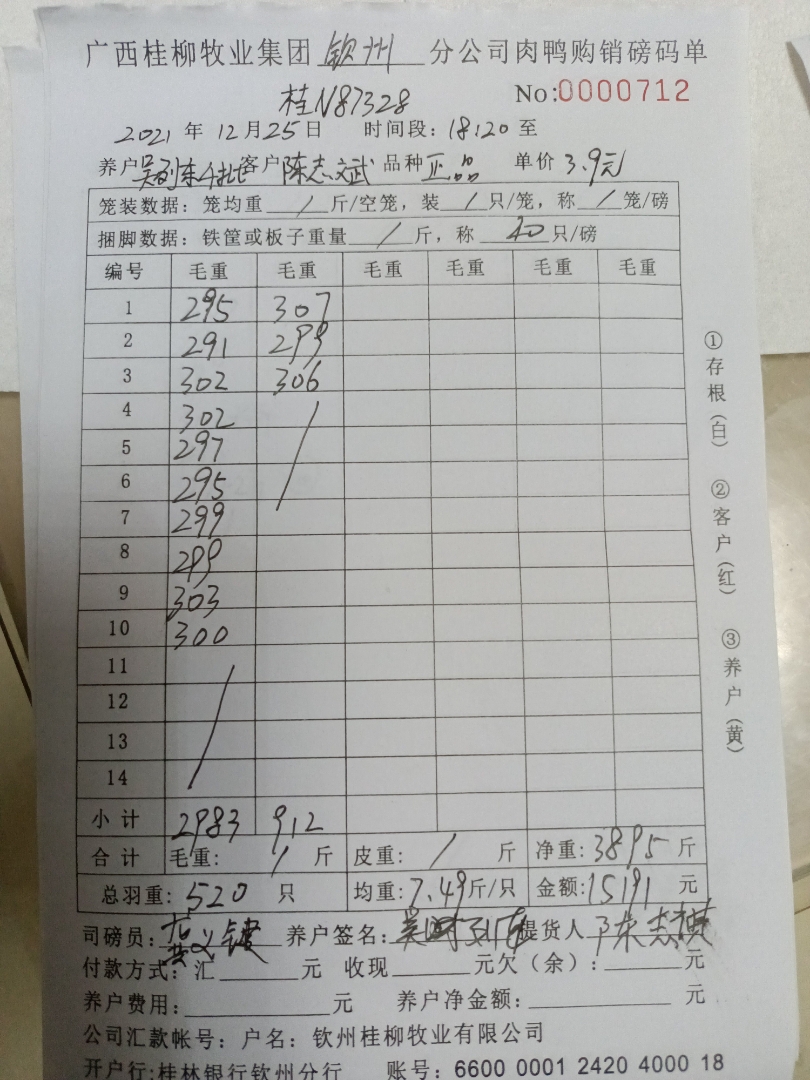 广西桂柳牧业集团 钦州 分公司肉鸭购销磅码单
桂N87328 No:0000712
2021 年 12 月 25 日 时间段: 18:20 至
养户 客户 陈志斌 品种 正品 单价 3.9元
笼装数据: 笼均重 / 斤/空笼, 装 / 只/笼, 称 / 笼/磅
捆脚数据: 铁筐或板子重量 / 斤, 称 40 只/磅
编号 毛重 毛重 毛重 毛重 毛重 毛重
1 295 307
2 291 299
3 302 306
4 302 /
5 297
6 295
7 299
8 299
9 303
10 300
11 /
12
13
14
小计 2983 912
合计 毛重: / 斤 皮重: / 斤 净重: 3895 斤
总羽重: 520 只 均重: 7.49 斤/只 金额: 15191 元
司磅员: 养户签名: 提货人
付款方式: 汇 元 收现 元欠(余): 元
养户费用: 元 养户净金额: 元
公司汇款帐号: 户名: 钦州桂柳牧业有限公司
开户行:桂林银行钦州分行 账号: 6600 0001 2420 4000 18
①存根(白) ②客户(红) ③养户(黄)